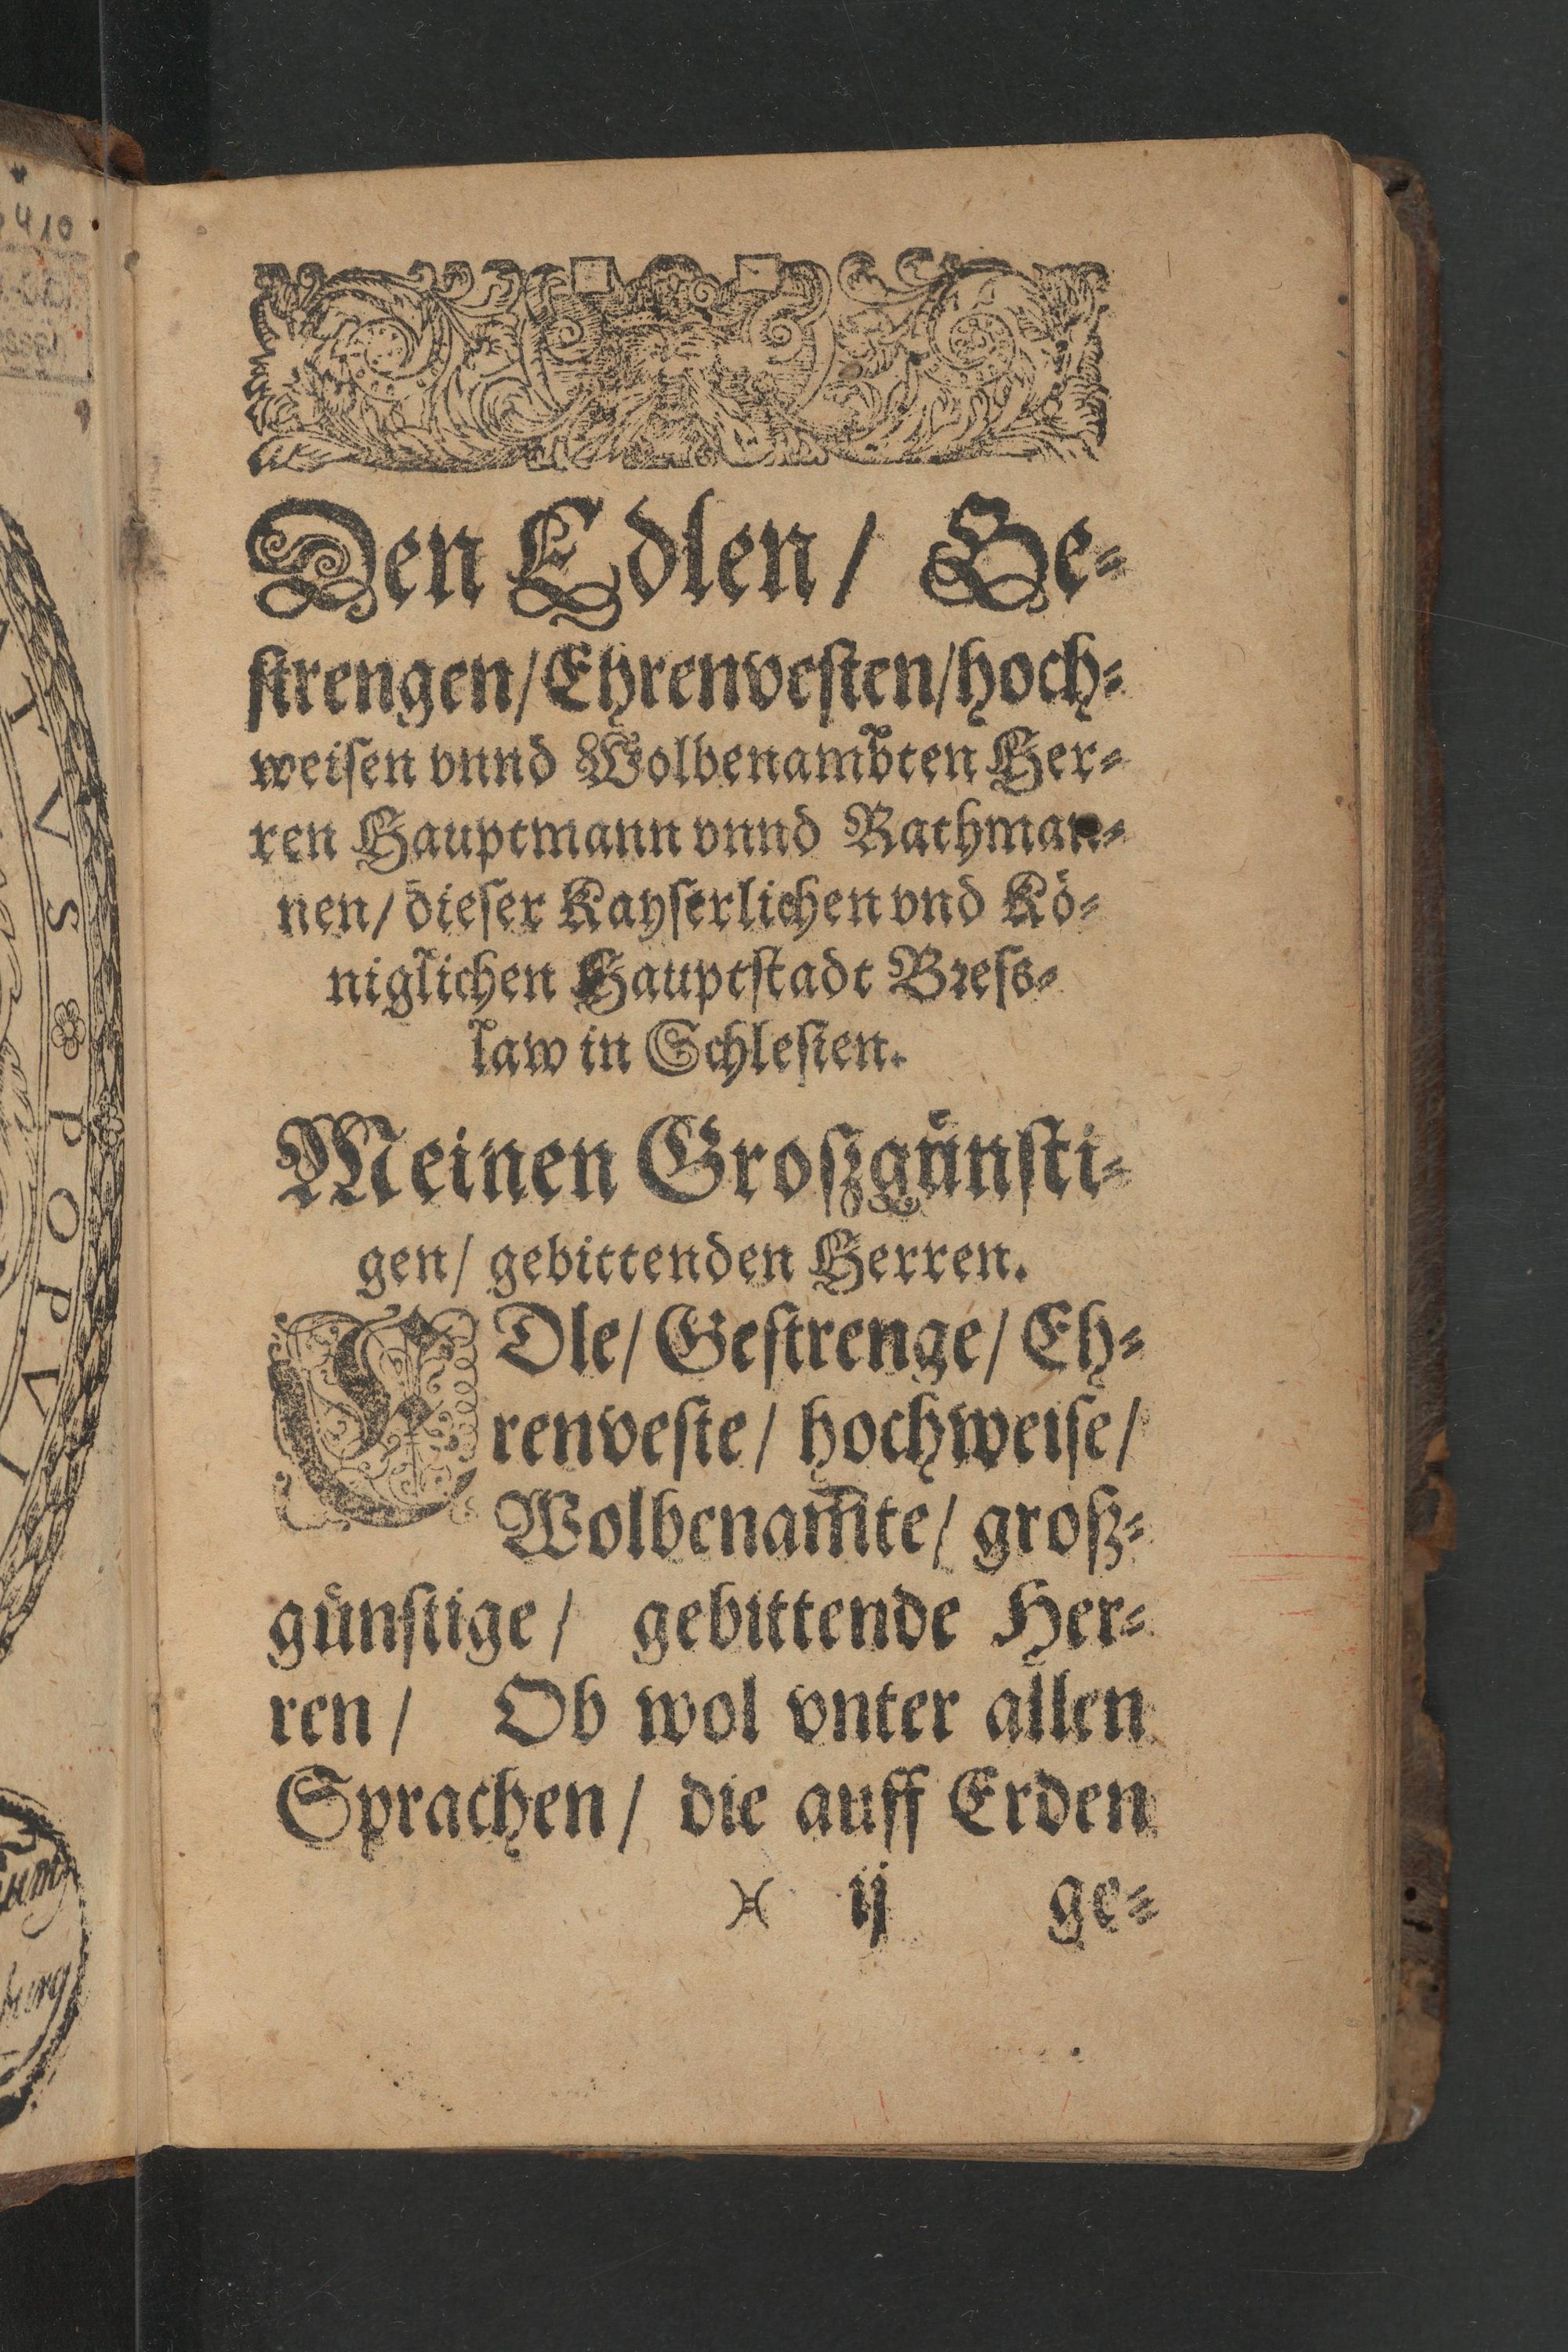 Den Edlen / Ge⸗
strengen/Ehrenvesten/hoch⸗
weisen vnnd Wolbenambten Her⸗
ren Hauptmann vnnd Rathman⸗
nen/ dieser Kayserlichen vnd Kö⸗
niglichen Hauptstadt Bress⸗
law in Schlesien.
Meinen Groszgünsti⸗
gen/ gebittenden Herren.
EDle/ Gestrenge/ Eh⸗
renveste/ hochweise/
Wolbenam̃te/ groß⸗
günstige/ gebittende Her⸗
ren/ Ob wol vnter allen
Sprachen/ die auff Erden
)( ij ge⸗
410
TVS POPV